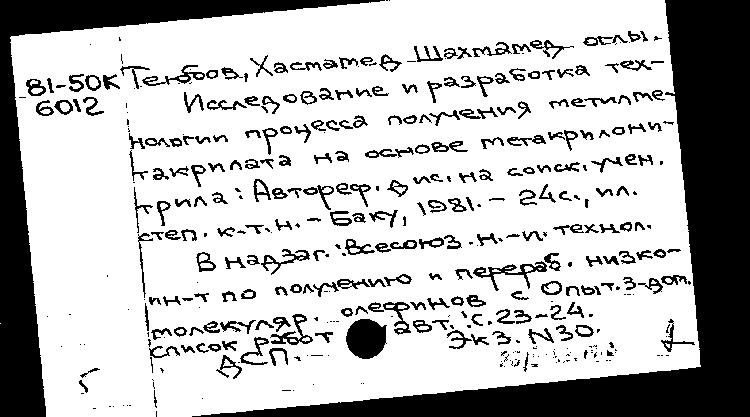 81-50К
6012
Теюбов, Хасмамед Шахмамед оглы.
Исследование и разработка тех-
нологии процесса получения метилме-
такрилата на основе метакрилони-
трила: Автореф. дис. на соиск. учен.
степ. к.т.н. - Баку, 1981. - 24с., ил.
В надзаг.: Всесоюз. н.-и. технол.
ин-т по получению и перераб. низко-
молекуляр. олефинов с Опыт. з-дом.
Список работ авт.: с. 23-24.
ДСП. Экз. N30.